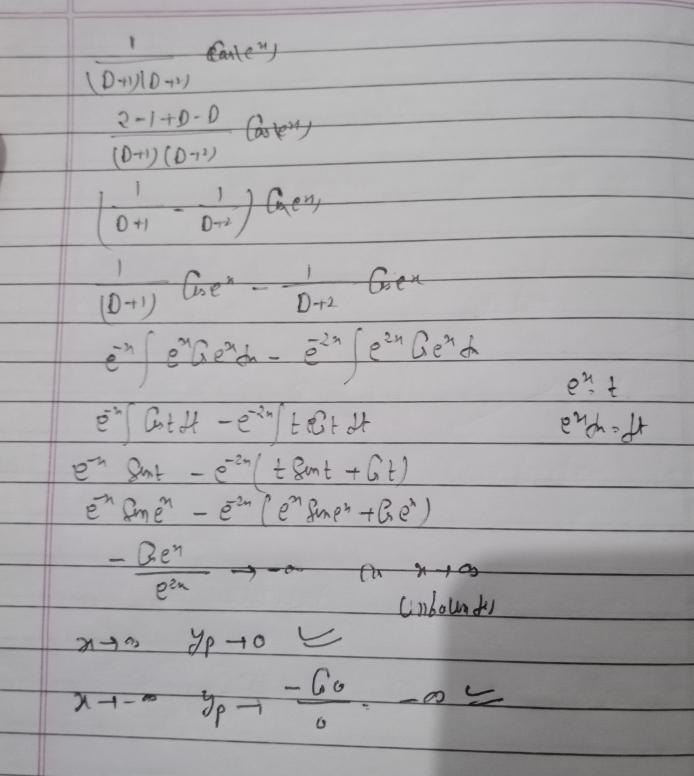 1/((D+1)(D+2)) Cos(eˣ)
(2-1+D-D)/((D+1)(D+2)) Cos(eˣ)
(1/(D+1) - 1/(D+2)) Cos(eˣ)
1/(D+1) Cos eˣ - 1/(D+2) Cos eˣ
e⁻ˣ ∫ eˣ Cos eˣ dx - e⁻²ˣ ∫ e²ˣ Cos eˣ dx
eˣ = t
e⁻ˣ ∫ Cos t dt - e⁻²ˣ ∫ t Cos t dt
eˣ dx = dt
e⁻ˣ Sin t - e⁻²ˣ (t Sin t + Cos t)
e⁻ˣ Sin eˣ - e⁻²ˣ (eˣ Sin eˣ + Cos eˣ)
- Cos eˣ / e²ˣ → -∞ as x → ∞
Unbounded
x → ∞ yp → 0
x → -∞ yp → - Cos 0 / 0 = -∞